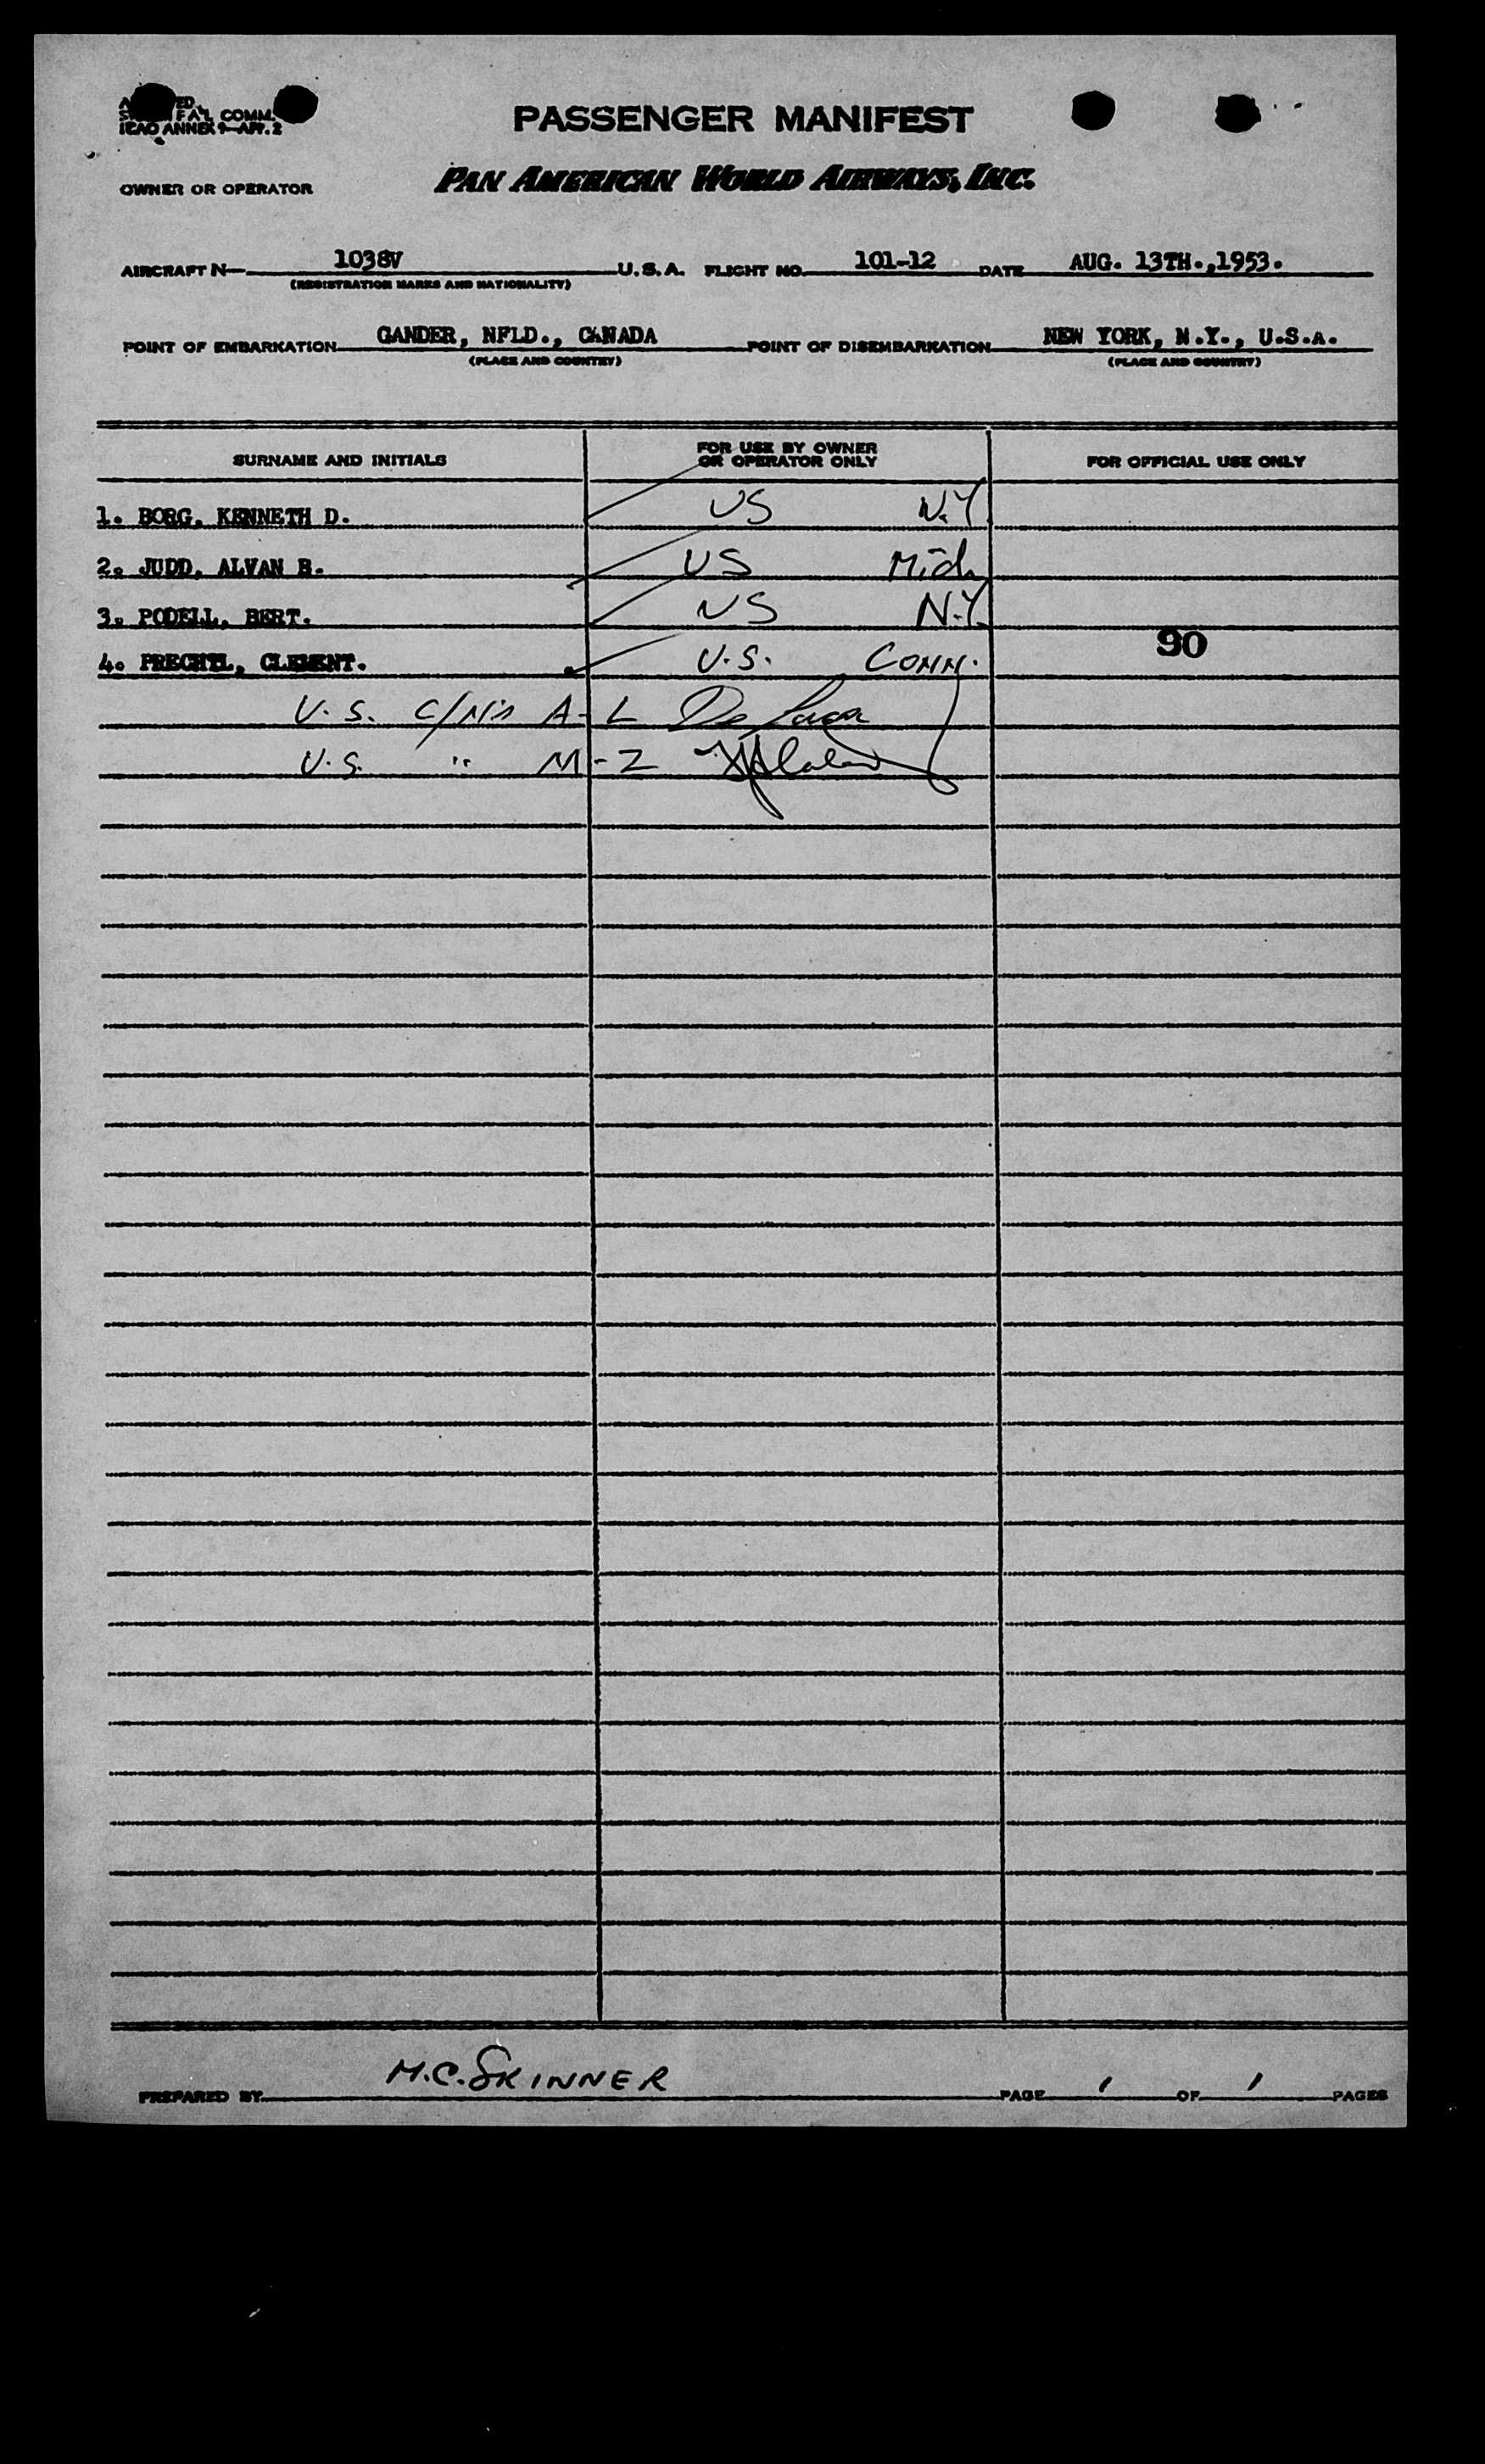 PASSENGER MANIFEST
COMM.
ICAO ANNEX 9—APP. 2
OWNER OR OPERATOR PAN AMERICAN WORLD AIRWAYS, INC.
AIRCRAFT N— 1038V U.S.A. FLIGHT NO. 101-12 DATE AUG. 13TH.,1953.
(REGISTRATION MARKS AND NATIONALITY)
POINT OF EMBARKATION GANDER, NFLD., CANADA POINT OF DISEMBARKATION NEW YORK, N.Y., U.S.A.
(PLACE AND COUNTRY) (PLACE AND COUNTRY)
SURNAME AND INITIALS FOR USE BY OWNER OR OPERATOR ONLY FOR OFFICIAL USE ONLY
1. BORG, KENNETH D. US N.Y
2. JUDD, ALVAN B. US Mich
3. PODELL, BERT. US N.Y.
4. PRECHTL, CLEMENT. U.S. CONN. 90
U.S. C/N's A-L
U.S. " M-Z
PREPARED BY M.C. SKINNER PAGE 1 OF 1 PAGES